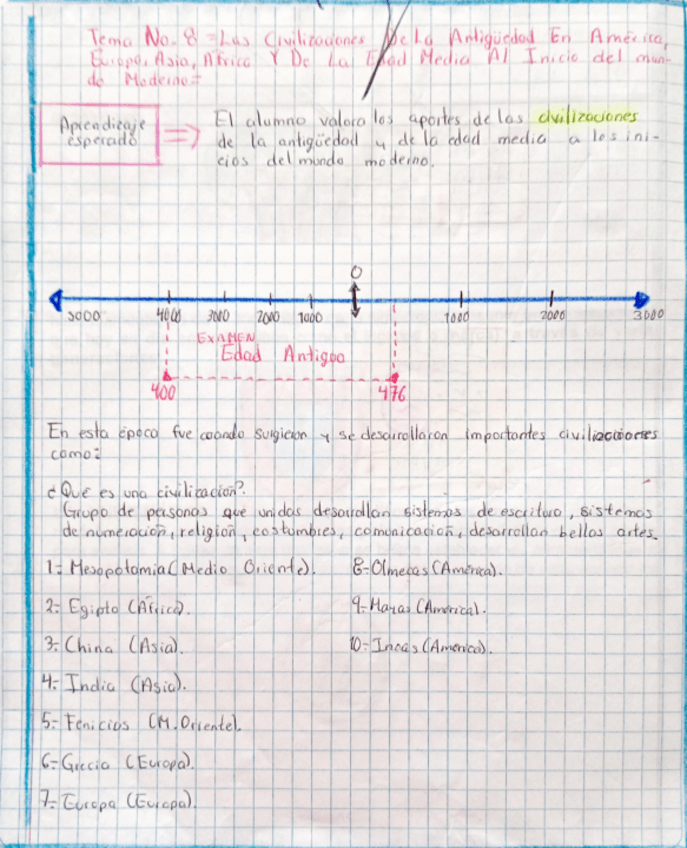 Tema No. 8 = Las Civilizaciones De La Antigüedad En América,
Europa, Asia, África Y De La Edad Media Al Inicio del mun-
do Moderno=
Aprendizaje
esperado
El alumno valora los aportes de las civilizaciones
de la antigüedad y de la edad media a los ini-
cios del mundo moderno.
0
5000 4000 3000 2000 1000 1000 2000 3000
EXAMEN
Edad Antigua
400 476
En esta época fue cuando surgieron y se desarrollaron importantes civilizaciones
como:
¿Qué es una civilización?.
Grupo de personas que unidas desarrollan sistemas de escritura, sistemas
de numeración, religión, costumbres, comunicación, desarrollan bellas artes.
1= Mesopotamia (Medio Oriente). 8=Olmecas (América).
2= Egipto (África). 9=Mayas (America).
3= China (Asia). 10=Incas (America).
4= India (Asia).
5= Fenicios (M. Oriente).
6= Grecia (Europa).
7= Europa (Europa).